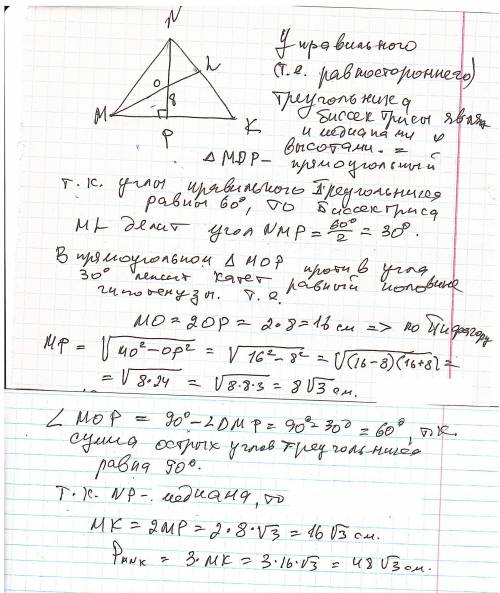 N
У правильного
(т.е. равностороннего)
L
O
треугольника
8
биссектрисы явля
M
и медианами и
P
K
высотами. =
Δ MOP - прямоугольный
т.к. углы правильного треугольника
равны 60°, то биссектриса
ML делит угол NMP = 60°/2 = 30°.
В прямоугольном Δ MOP против угла
30° лежит катет равный половине
гипотенузы. т.е.
MO = 2OP = 2·8 = 16 см => по Пифагору
MP = √MO²-OP² = √16²-8² = √(16-8)(16+8) =
= √8·24 = √8·8·3 = 8√3 см.
∠ MOP = 90° - ∠OMP = 90° - 30° = 60°, т.к.
сумма острых углов треугольника
равна 90°.
т.к. NP - медиана, то
MK = 2MP = 2·8·√3 = 16√3 см.
P = 3·MK = 3·16·√3 = 48√3 см.